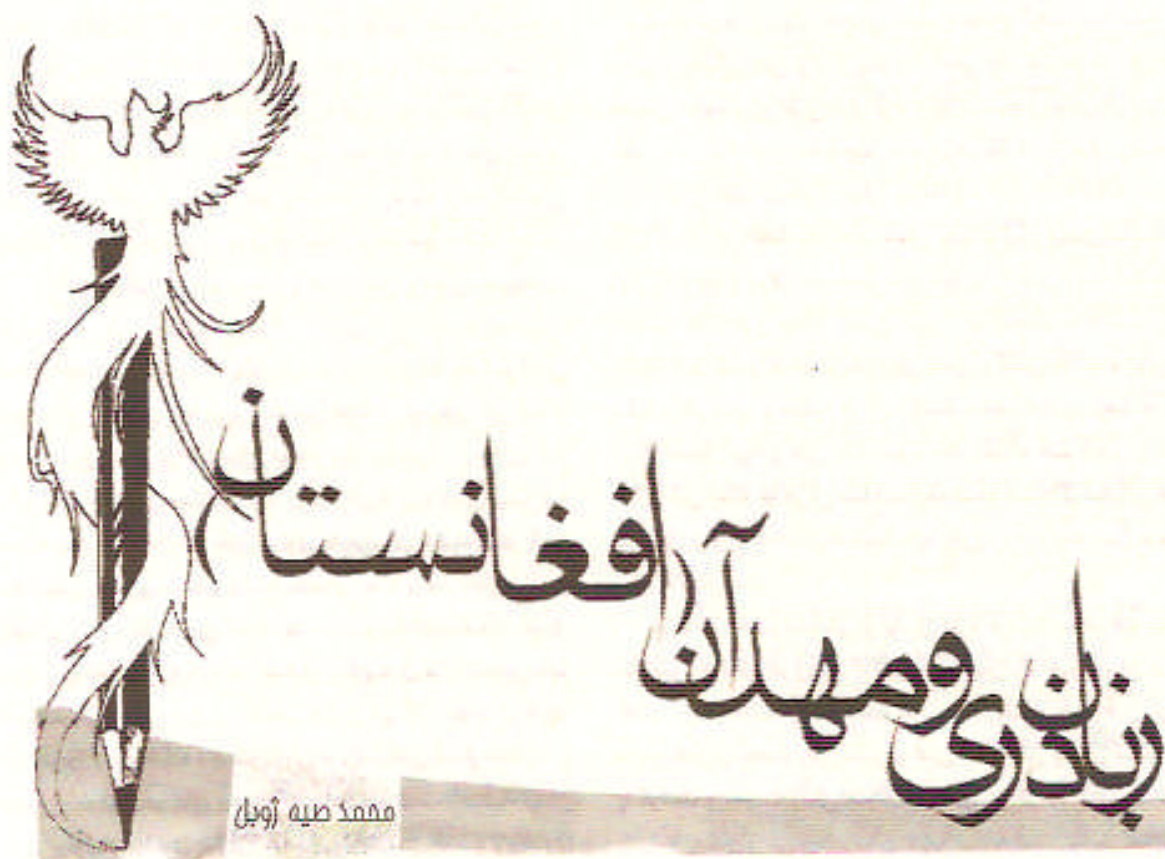 زبان دری و مهد آن افغانستان
محمد صیه ژوبل